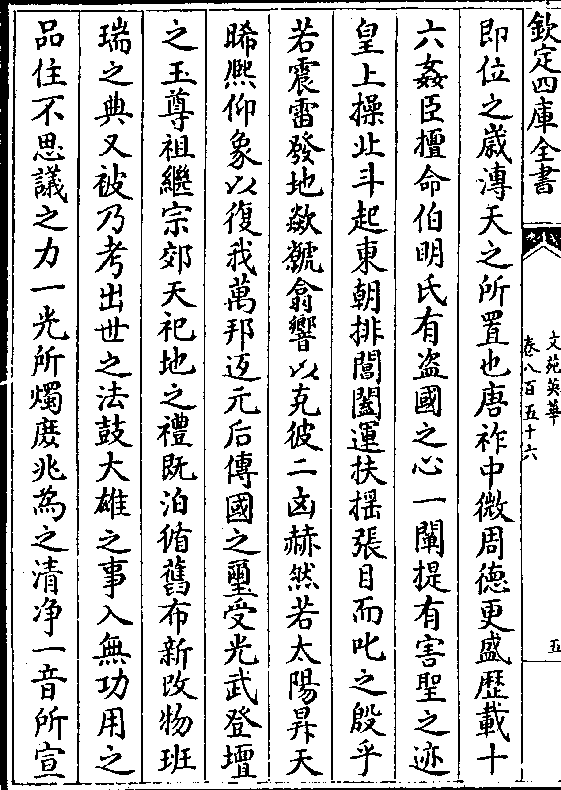 欽定四庫全書
文苑英華
卷八百五十六
五
即位之歲溥天之所置也唐祚中微周德更盛歷載十
六姦臣擅命伯明氏有盗國之心一闡提有害聖之迹
皇上操北斗起東朝排閶闔運扶揺張目而叱之殷乎
若震雷發地歘虩翕響以克彼二凶赫然若太陽昇天
晞熈仰象以復我萬邦迓元后傳國之璽受光武登壇
之玉尊祖繼宗郊天祀地之禮既洎脩舊布新改物班
瑞之典又被乃考出世之法鼓大雄之事入無功用之
品住不思議之力一光所燭庶兆為之清浄一音所宣